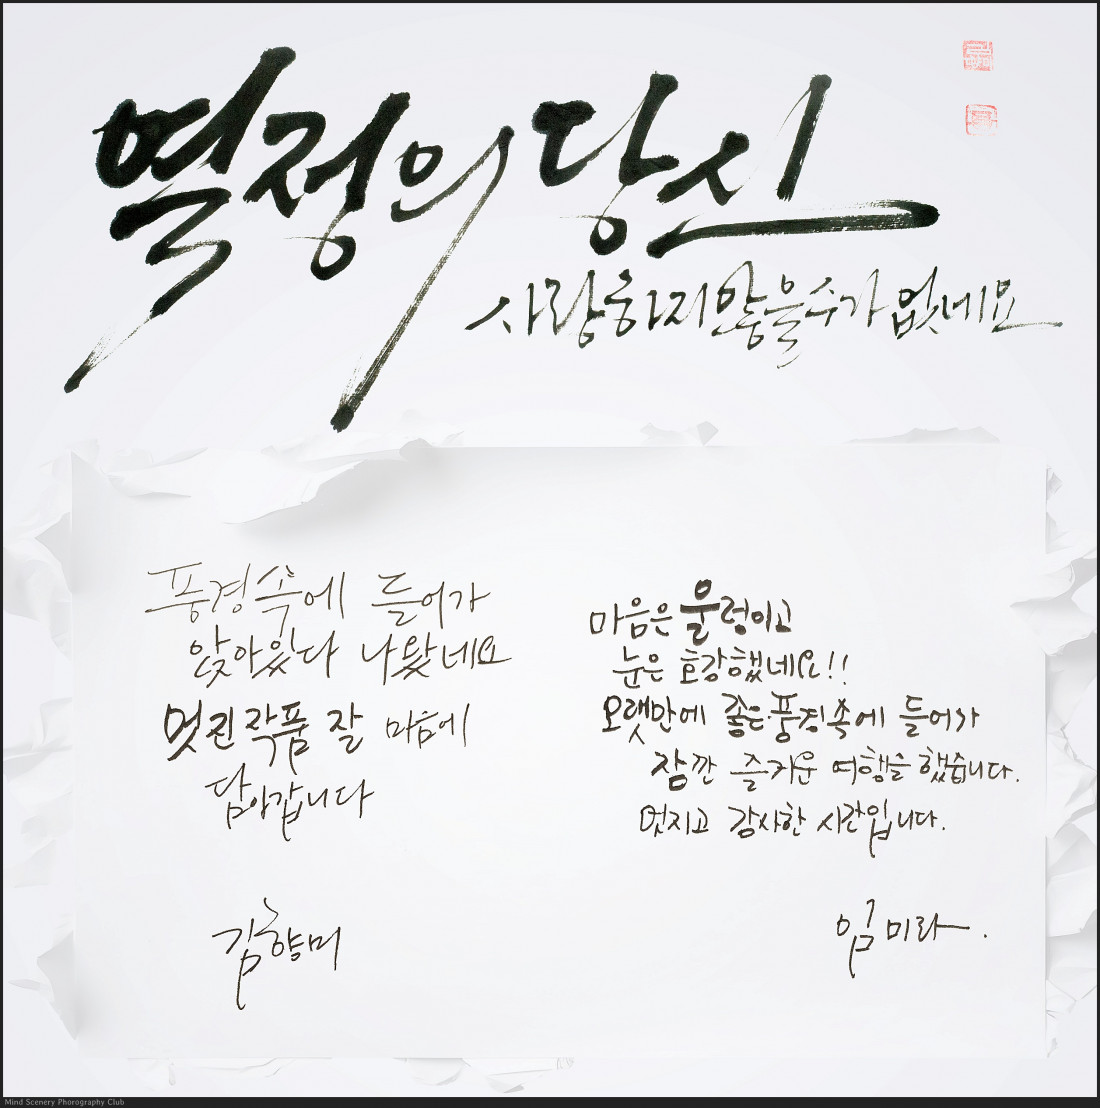 열정의 당신
사랑하지 않을 수가 없네요
풍경속에 들어가
앉아있다 나왔네요
멋진 작품 잘 마음에
담아갑니다
김향미
마음은 울렁이고
눈은 호강했네요!!
오랫만에 좋은 풍경속에 들어가
잠깐 즐거운 여행을 했습니다.
멋지고 감사한 시간입니다.
임미라.
Mind Scenery Phorography Club